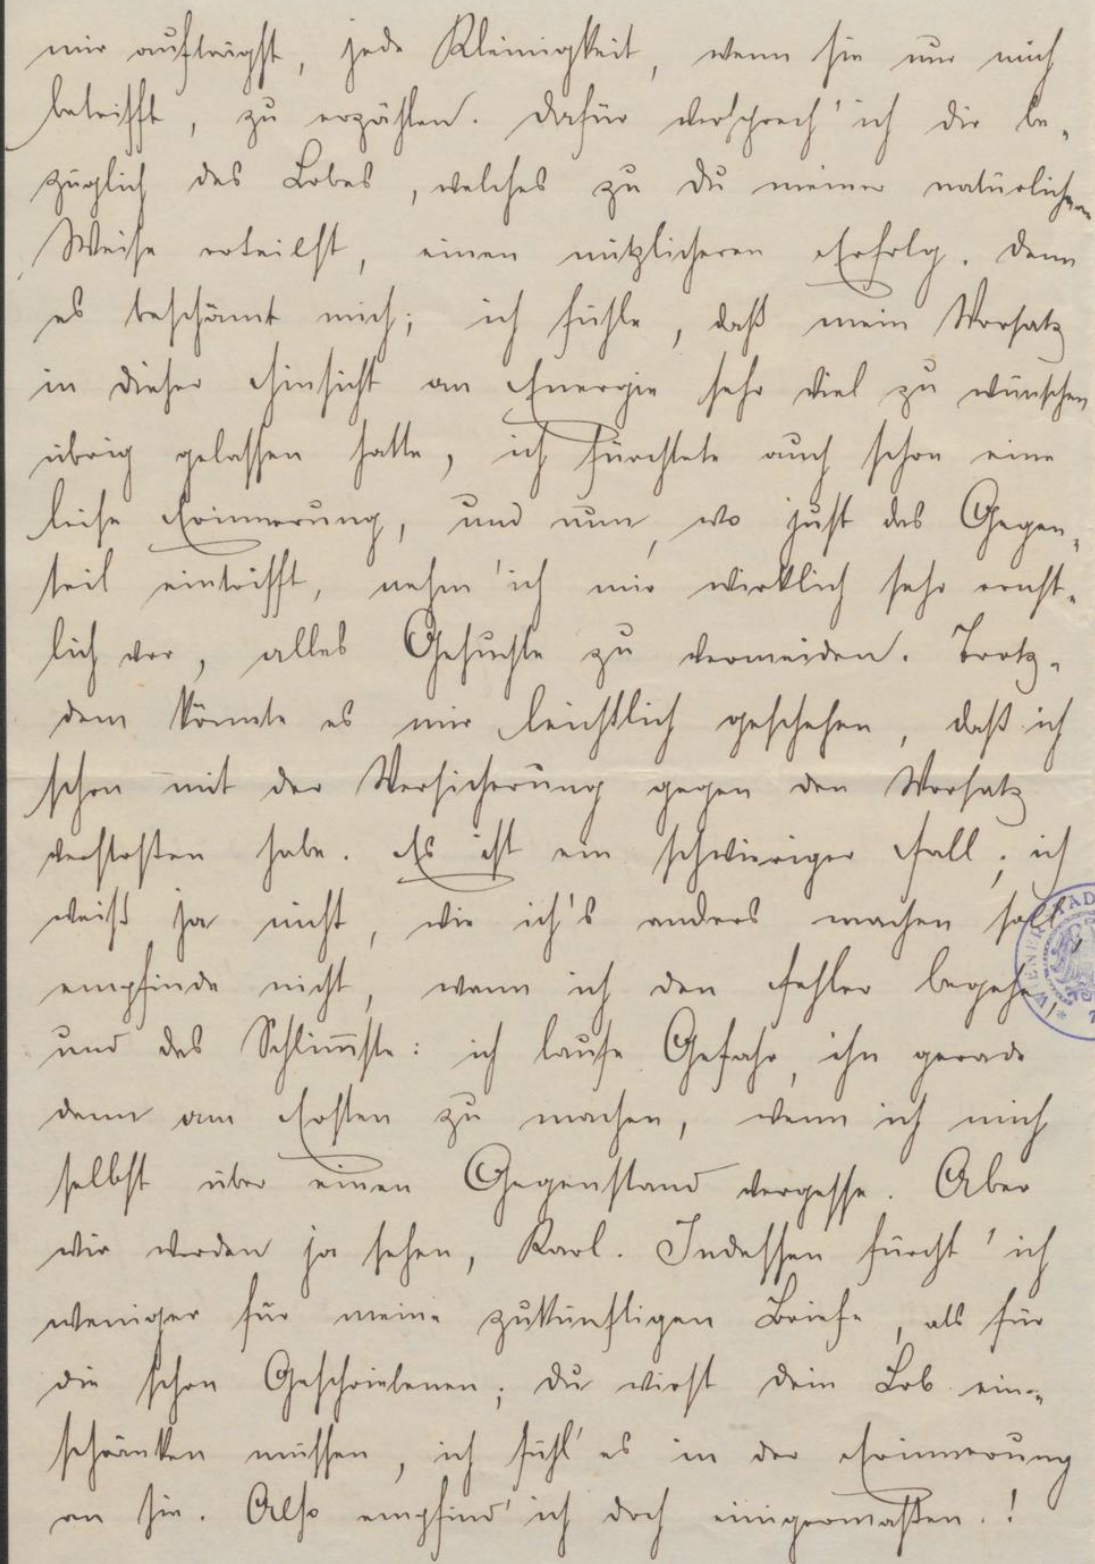 mir aufträgst, jede Kleinigkeit, wenn sie nur mich
betrifft, zu erzählen. Dafür versprech' ich dir be-
züglich des Lobes, welches zu du meiner natürlichen
Weise erteilst, einen nützlicheren Erfolg. Denn
es beschämt mich; ich fühle, daß mein Vorsatz
in dieser Hinsicht an Energie sehr viel zu wünschen
übrig gelassen hatte, ich fürchtete auch schon eine
leise Erinnerung, und nun, wo just das Gegen-
teil eintrifft, nehm' ich mir wirklich sehr ernst-
lich vor, alles Gesuchte zu vermeiden. Trotz-
dem könnte es mir leichtlich geschehen, daß ich
schon mit der Versicherung gegen den Vorsatz
verstoßen habe. Es ist ein schwieriger Fall; ich
weiß ja nicht, wie ich's anders machen soll
empfinde nicht, wann ich den Fehler begehe,
und das Schlim̅ste: ich laufe Gefahr, ihn gerade
dann am Ersten zu machen, wenn ich mich
selbst über einen Gegenstand vergesse. Aber
wir werden ja sehen, Karl. Indessen fürcht' ich
weniger für meine zukünftigen Briefe, als für
die schon Geschriebenen; du wirst dein Lob ein-
schränken müssen, ich fühl' es in der Erinnerung
an sie. Also empfind' ich doch einigermaßen.!
WIENER STAD